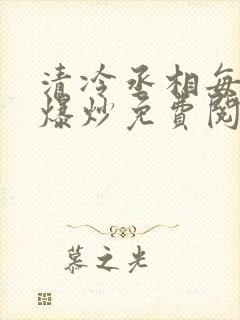 清冷丞相每
爆炒免费阅
慕之光